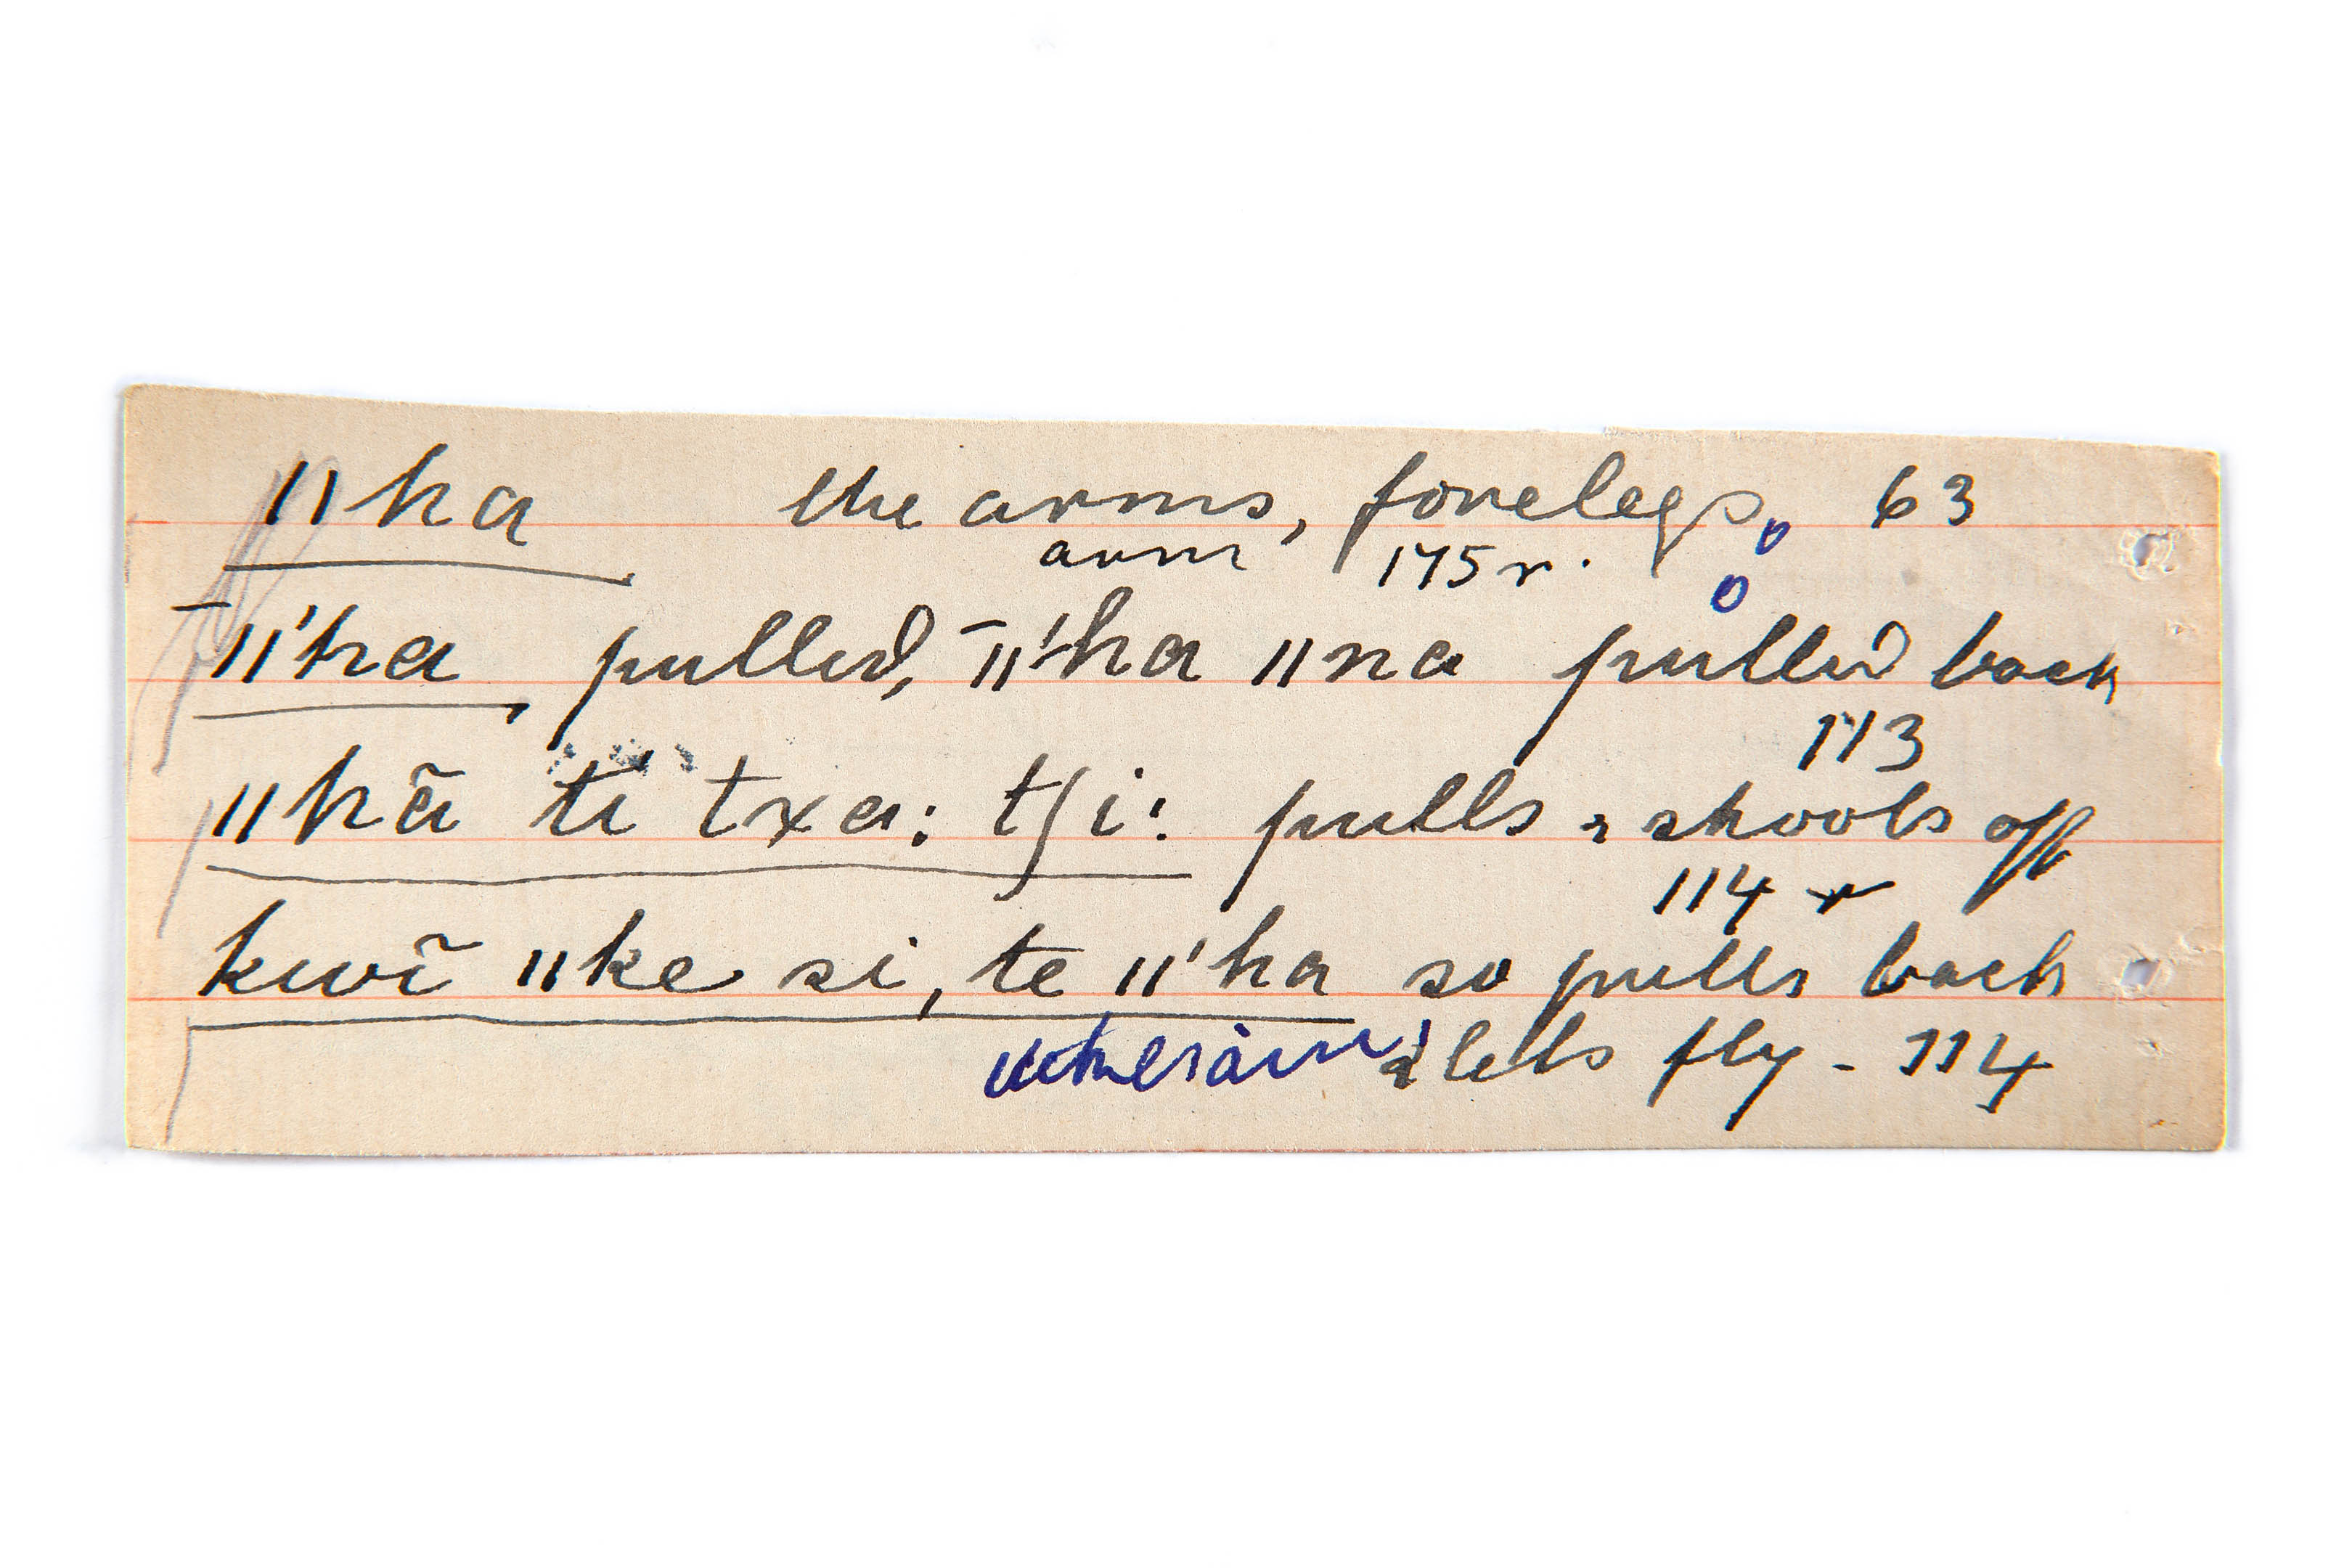 ǁha the arms, forelegs, 63
arm 175 r.
¯ǁ'ha, pulled, ¯ǁ'ha ǁna pulled back
113
ǁhã ti txa: tʃi: pulls & shoots off
114 r
kwĩ ǁke si, te ǁ'ha so pulls back
& lets fly - 114